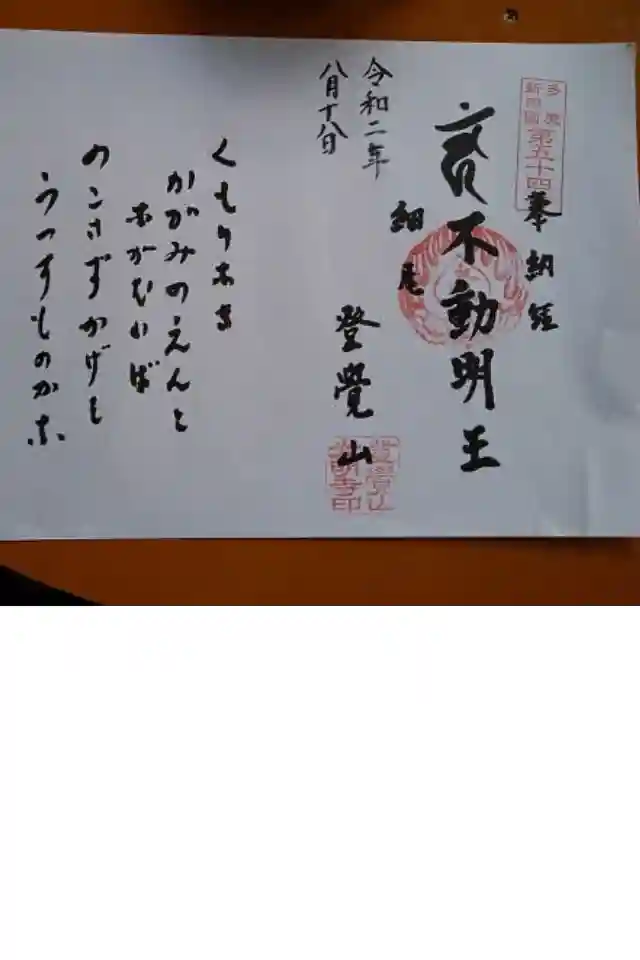 多摩
新四國
第五十四
奉納経
不動明王
細尾
登覺山
登覺山
光明寺印
令和二年
八月十八日
くもりなき
かがみのえんと
ながむれば
のこさずかげを
うつすものかな